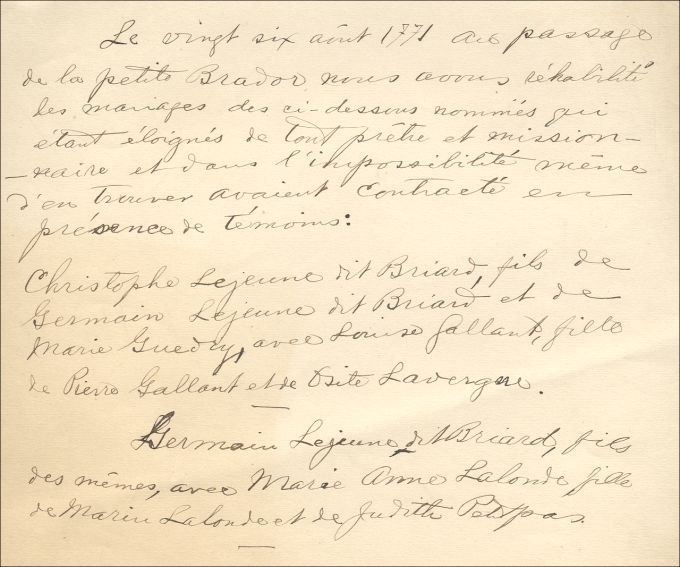 Le vingt six août 1771 au passage
de la petite Brador, nous avons réhabilité
les mariages des ci-dessous nommés qui
étant éloignés de tout prêtre et mission-
-naire et dans l'impossibilité même
d'en trouver avaient contracté en
présence de témoins:
Christophe Lejeune dit Briard, fils de
Germain Lejeune dit Briard et de
Marie Guedry, avec Louise Gallant, fille
de Pierre Gallant et de Osite Lavergne.
Germain Lejeune dit Briard, fils
des mêmes, avec Marie Anne Lalonde fille
de Marin Lalonde et de Judith Petitpas.